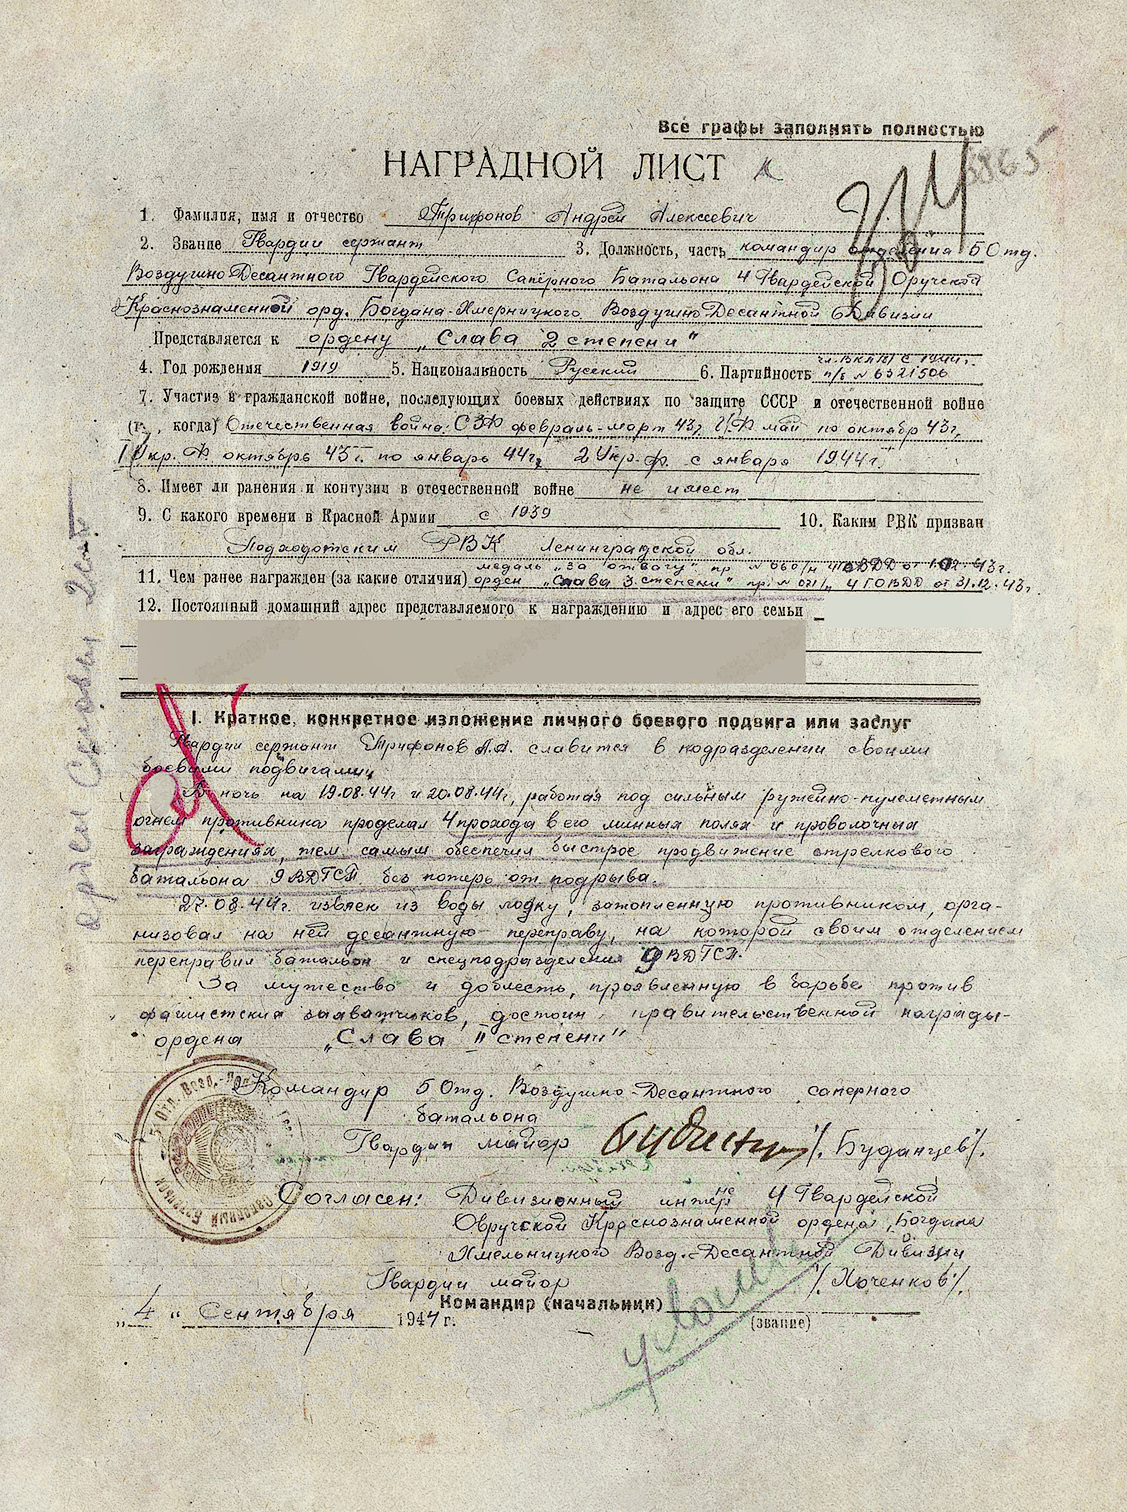 Все графы заполнять полностью
НАГРАДНОЙ ЛИСТ
1. Фамилия, имя и отчество Трифонов Андрей Алексеевич
2. Звание Гвардии сержант 3. Должность, часть командир отделения 5 Отд.
Воздушно Десантного Гвардейского Сапёрного Батальона 4 Гвардейской Овручской
Краснознаменной орд. Богдана-Хмерницкого Воздушно Десантной Дивизии
Представляется к ордену „Слава 2 степени"
чл. ВКП(б) с 1944г.
4. Год рождения 1919 5. Национальность Русский 6. Партийность п/б № 6321506
7. Участие в гражданской войне, последующих боевых действиях по защите СССР и отечественной войне
(г , когда) Отечественная война: СЗФ февраль-март 43г Ц.Ф май по октябр 43г,
1 Укр. Ф октябрь 43 г. по январь 44г, 2 Укр.ф. с января 1944г.
8. Имеет ли ранения и контузии в отечественной войне не имеет
9. С какого времени в Красной Армии с 1939 10. Каким РВК призван
РВК Ленинградской обл.
медаль „За отвагу" пр №
11. Чем ранее награжден (за какие отличия) орден „Слава 3 степени" пр. № 071/ 4 ГОВДД от 31.12.43г.
12. Постоянный домашний адрес представляемого к награждению и адрес его семьи
орден Славы 2 ст
I. Краткое, конкретное изложение личного боевого подвига или заслуг
Гвардии сержант Трифонов А.А. славится в подразделении своими
боевыми подвигами
В ночь на 19.08.44г и 20.08.44г, работая под сильным ружейно-пулеметным
огнем противника проделал 4 прохода в его минных полях и проволочных
заграждениях, тем самым обеспечил быстрое продвижение стрелкового
батальона 9 ВДГСП без потерь от подрыва.
27.08.44г. извлек из воды лодку, затопленную противником, орга-
низовал на ней десантную переправу, на которой своим отделением
переправил батальон и спецподразделения 9 ВДГСП.
За мужество и доблесть, проявленную в борьбе против
фашистских захватчиков, достоин правительственной награды-
ордена „Слава II степени"
Командир 5 Отд. Воздушно-Десантного саперного
батальона
Гвардии майор /. Буданцев/.
Согласен: Дивизионный инжер 4 Гвардейской
Овручской Краснознаменной ордена Богдана
Хмельницкого Возд.-Десантной Дивизии
Гвардии майор /. Хоченков/.
Командир (начальник)
„4" Сентября 1944 г. (звание)